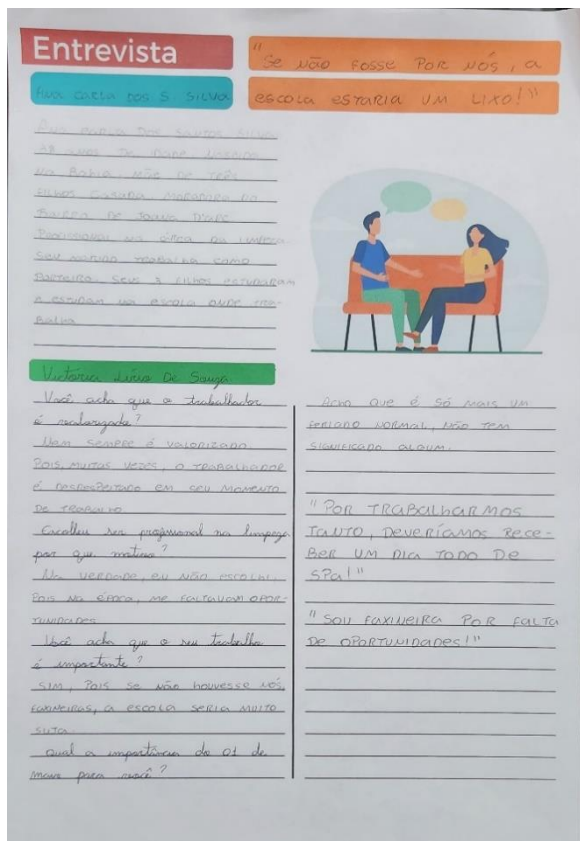 Entrevista
"Se não fosse por nós, a
escola estaria um lixo!"
Ana Carla dos S. Silva
Ana Carla dos Santos Silva
48 anos de idade, nascida
na Bahia, mãe de três
filhos casada moradora do
Bairro de
Profissional na área da limpeza
Seu marido trabalha como
porteiro. Seus 3 filhos estudaram
e estudam na escola onde tra-
balha
Victoria Lírio De Souza
Você acha que o trabalhador
é valorizado?
Nem sempre é valorizado.
Pois, muitas vezes, o trabalhador
é desrespeitado em seu momento
de trabalho
Escolheu ser profissional na limpeza
por que motivo?
Na verdade, eu não escolhi,
Pois na época, me faltavam opor-
tunidades
Você acha que o seu trabalho
é importante?
Sim, pois se não houvesse nós,
faxineiras, a escola seria muito
suja.
Qual a importância do 01 de
maio para você?
Acho que é só mais um
feriado normal, não tem
significado algum.
"Por trabalharmos
tanto, deveríamos rece-
ber um dia todo de
spa!"
"Sou faxineira por falta
de oportunidades!"